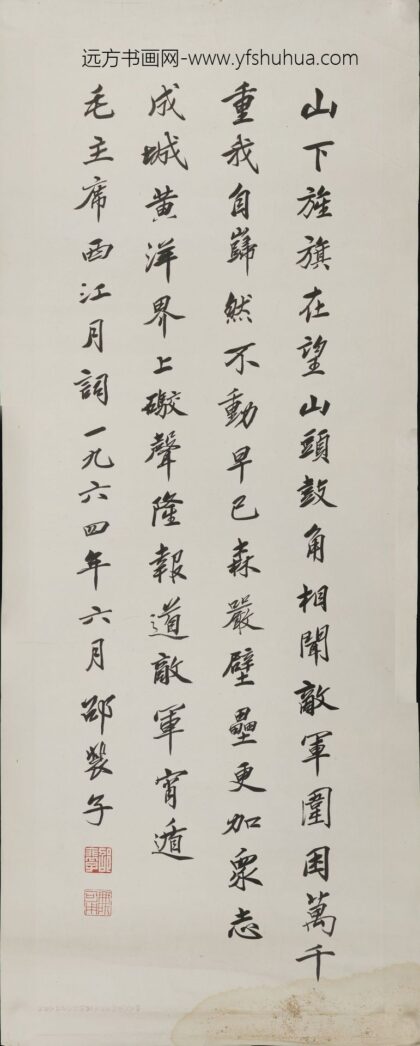 远方书画网-www.yfshuhua.com
山下旌旗在望山頭鼓角相聞敵軍圍困萬千
重我自巋然不動早已森嚴壁壘更加衆志
成城黄洋界上礮聲隆報道敵軍宵遁
毛主席西江月詞一九六四年六月邵裴子